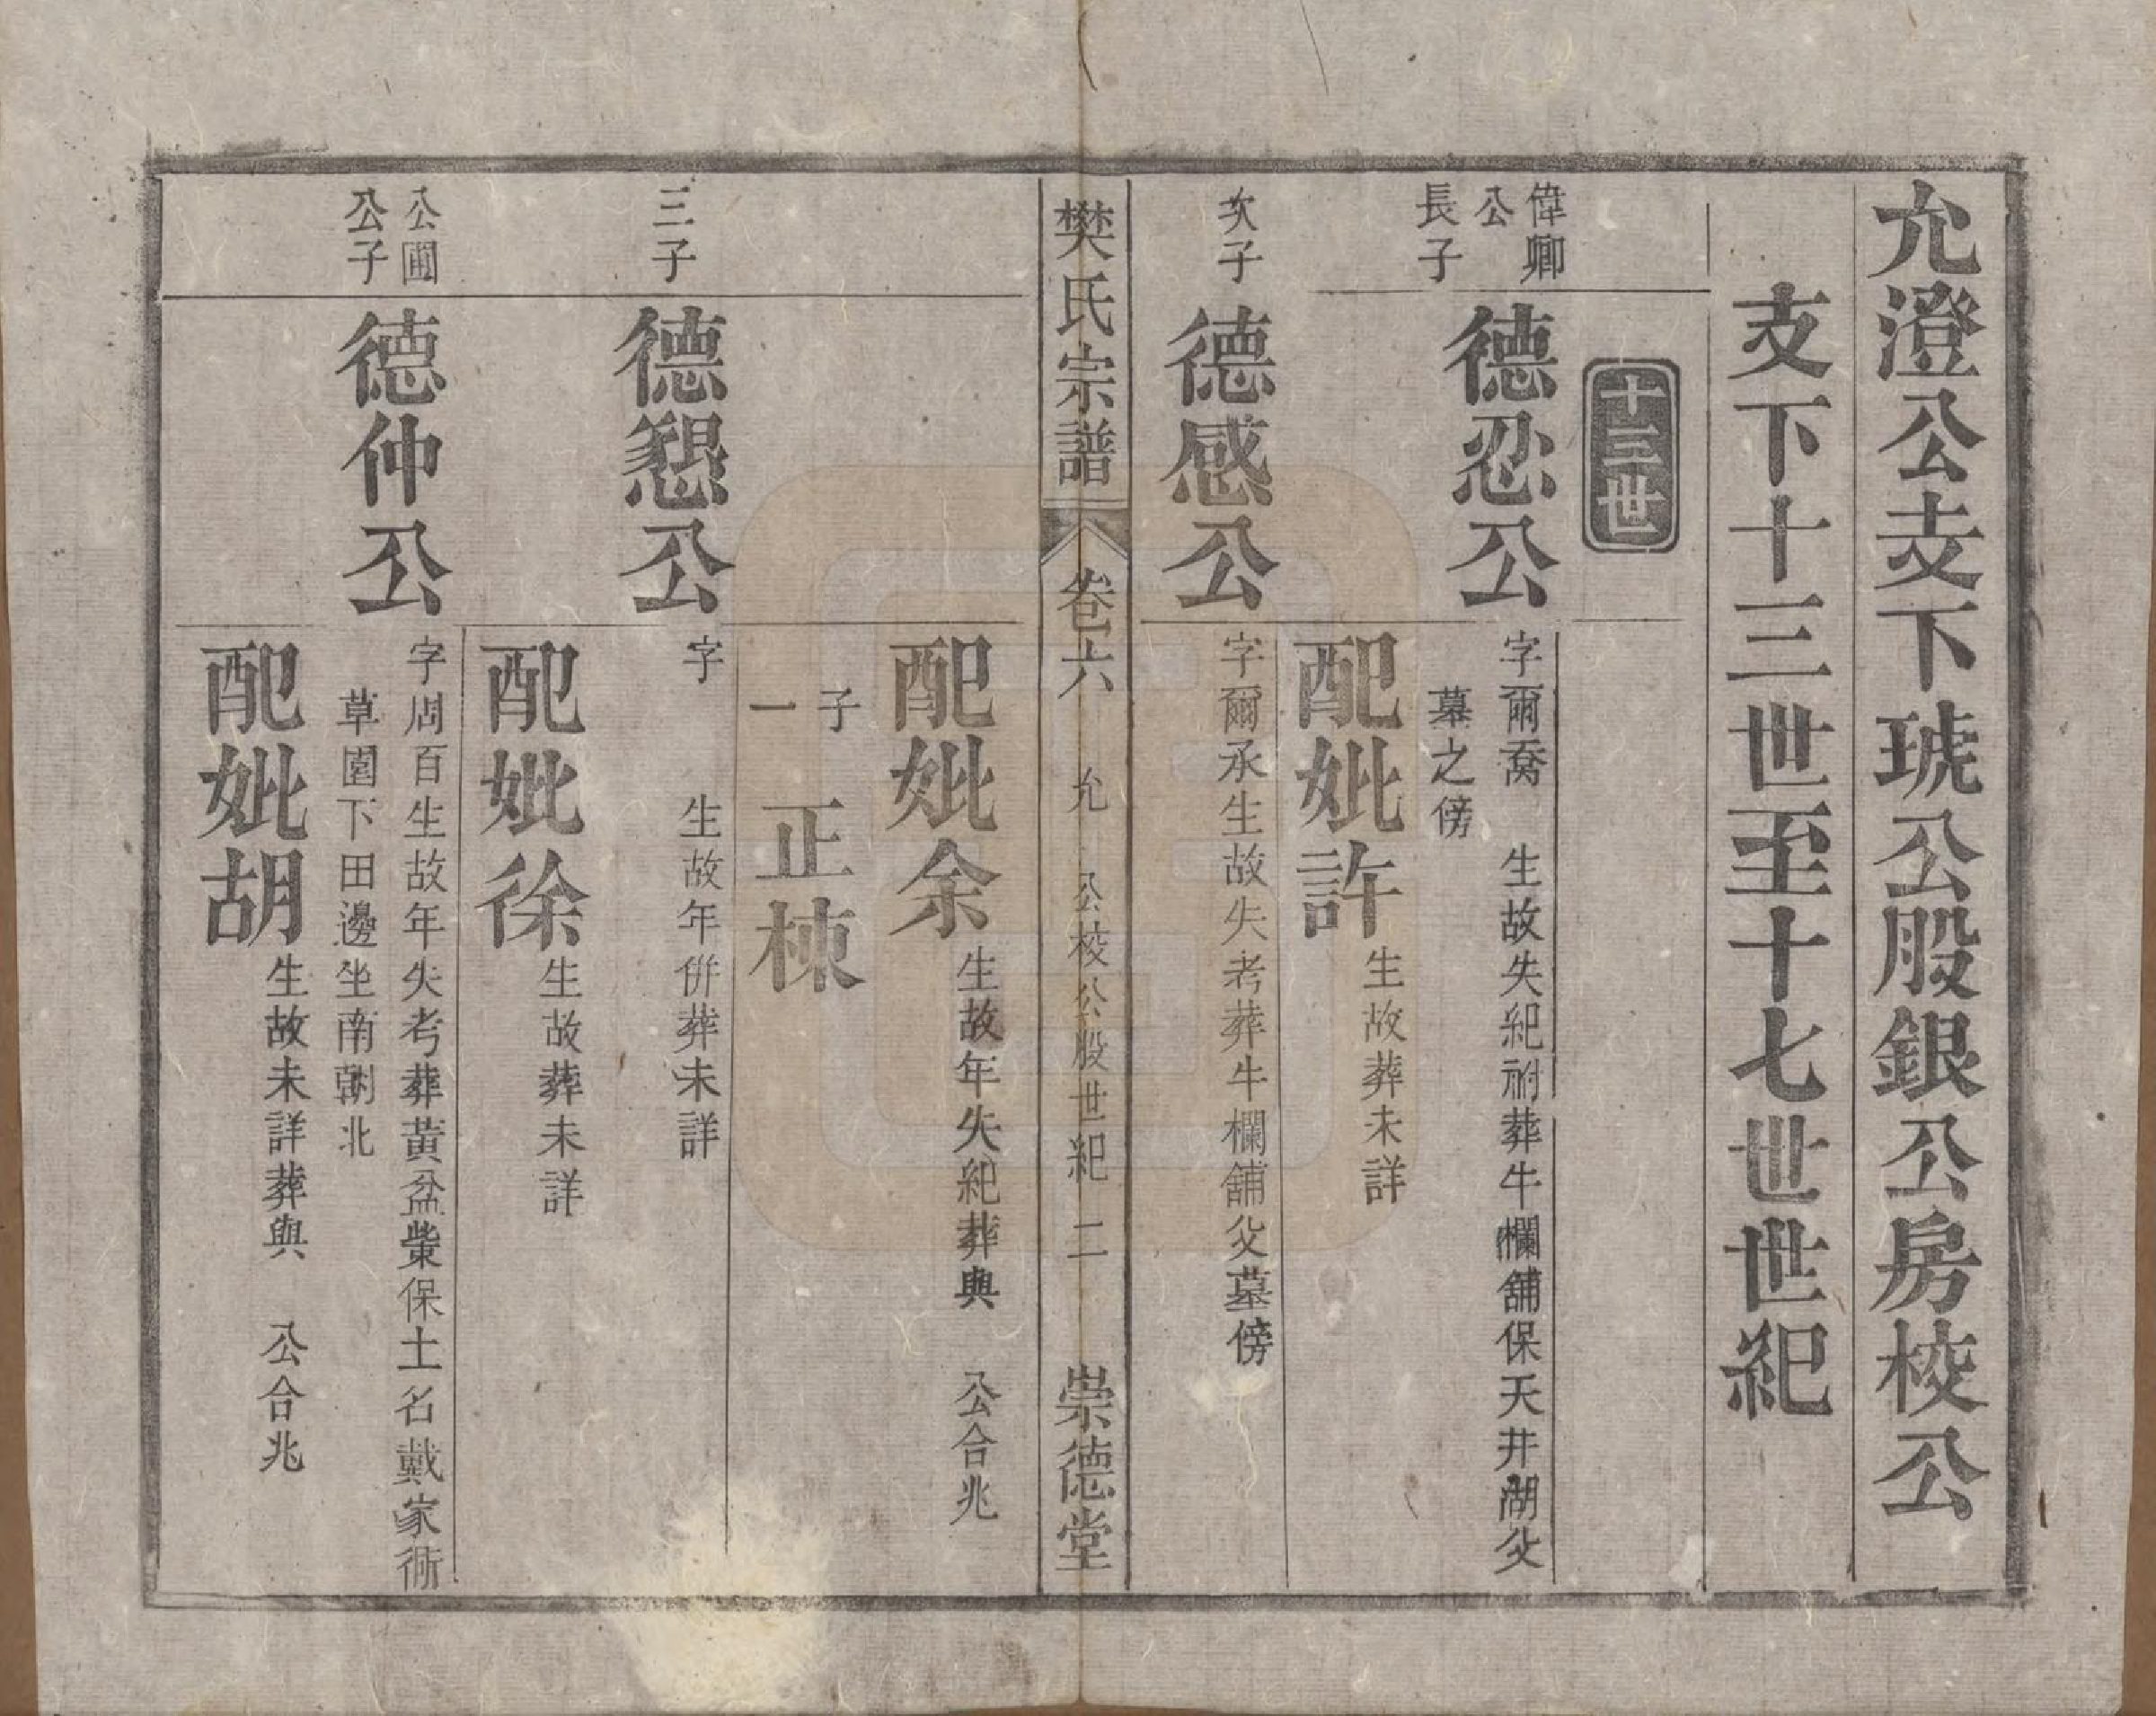 允澄公支下琥公股銀公房校公
支下十三世至十七世世紀
十三世
偉卿
公
長子
德忍公
字爾喬　生故失紀祔葬牛欄舖保天井湖父
墓之傍
配妣許
生故葬未詳
次子
德感公
字爾承生故失考葬牛欄舖父墓傍
樊氏宗譜　卷六　允　公校公股世紀　二　崇德堂
配妣余
生故年失紀葬與　公合兆
子
一
正棟
三子
德懇公
字　　生故年併葬未詳
配妣徐
生故葬未詳
公圃
公子
德仲公
字周百生故年失考葬黃盆柴保土名戴家衕
草園下田邊坐南朝北
配妣胡
生故未詳葬與　公合兆